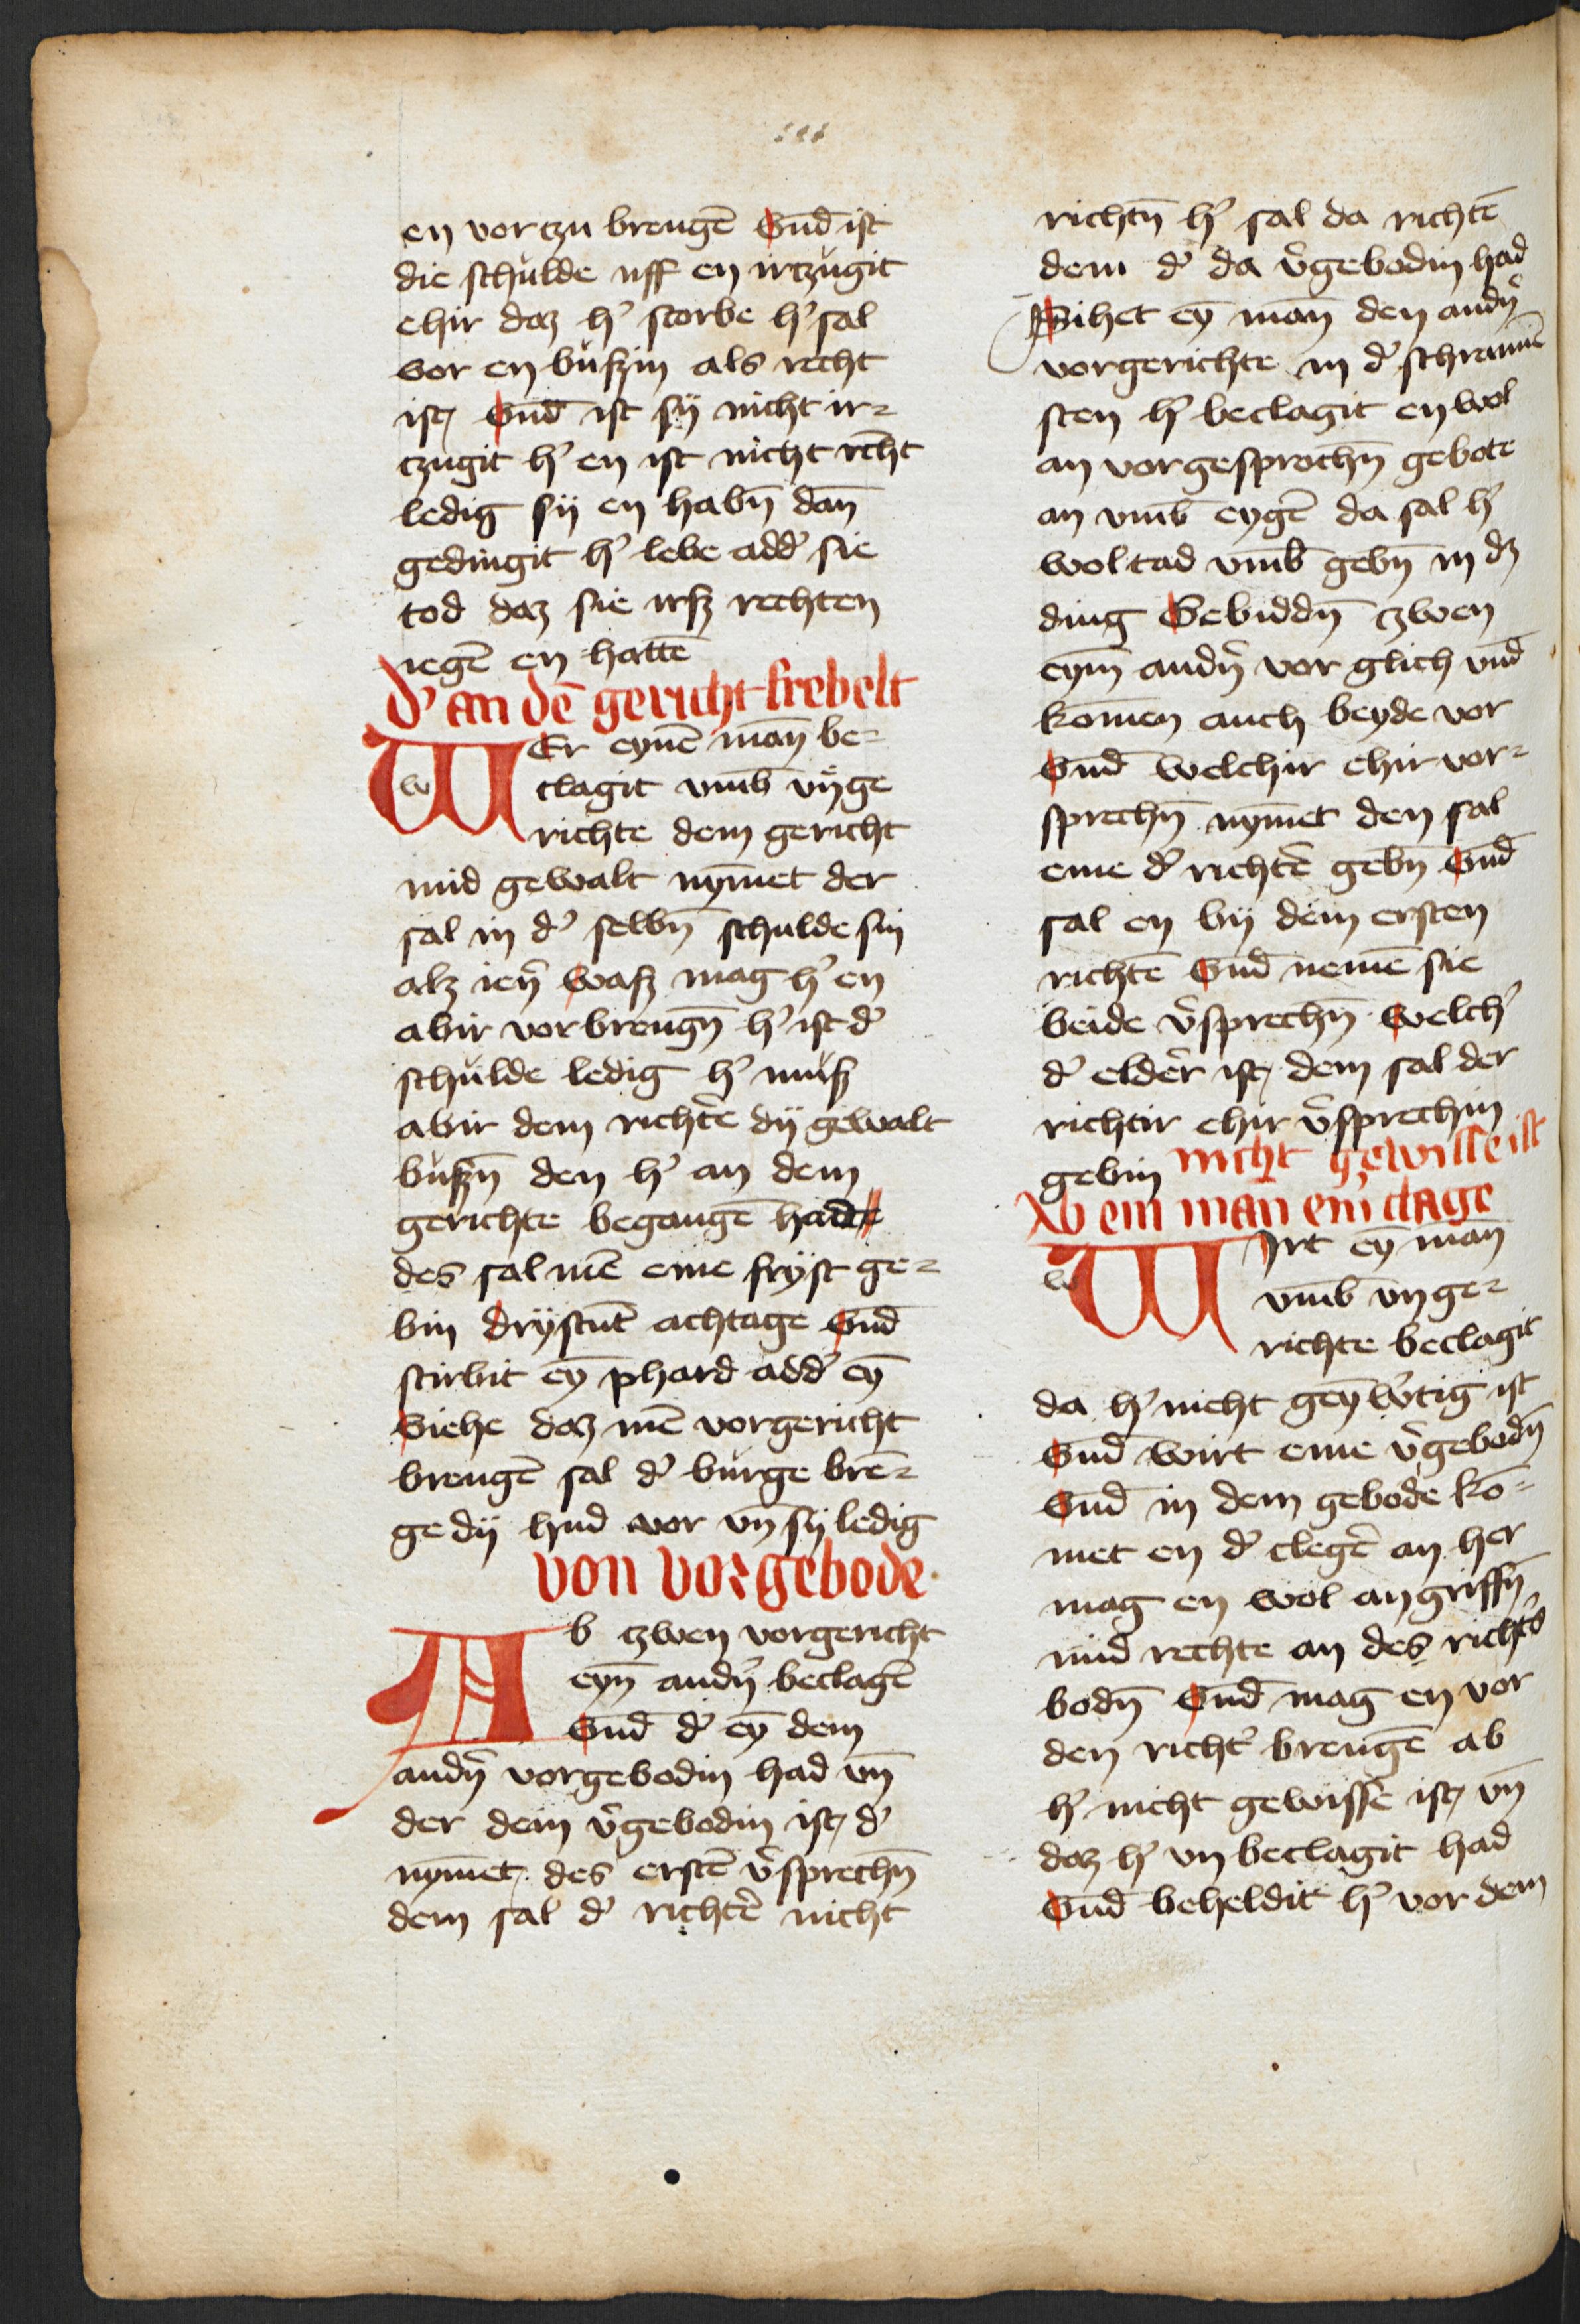 en vor czu brengē Vnd̄ ist
die schulde uff en irczugit
ehir daz h' storbe h' sal
vor en bußin als recht
ist Vnd̄ ist sÿ nicht ir-
czugit h' en ist nicht rēht
ledig sÿ en habn̄ dan̄
gedingit h' lebe add' sie
tod daz sie irß rechten
iegē en hattē
d' an dē gericht frebelt
WEr eynē man̄ be-
clagit vm̄b vnge
richte dem gericht
mid gewalt nym̄et der
sal in d' selbn̄ schulde sin
alz ien' waß mag h' en
abir vorbrengn̄ h' ist d'
schulde ledig h' muß
abir dem richt'e dÿ gewalt
bußn̄ den h' an dem
gerichte begangē hadte
des sal mē eme fryst ge-
bin drystūt achtage Vnd̄
stirbit eȳ phard add' eȳ
viehe daz mē vorgericht
brengē sal d' burge brē-
ge dÿ hud vor vn̄ sÿ ledig
von vorgebode
Ab czwen vorgericht
eyn̄ andn' beclagē
Vnd̄ d' eȳ dem
andn' vorgebodin had vn̄
der dem v'gebodin ist d'
nym̄et des erstē v'sprechn̄
dem sal d' richt'e nicht
richtn̄ h' sal da richtē
dem d' da v'gebodin had
Sihet eȳ man̄ den andn'
vorgerichte in d' schrannē
sten h' beclagit en wol
an vorgesprochn̄ gebote
an vm̄b eygē da sal h'
wol tad vm̄b gebn̄ in dz
ding Gebiddn̄ czwen
eym̄ andn' vor glich vnd̄
kom̄en auch beyde vor
Vnd̄ welchir ehir vor-
sprechn̄ nym̄et den sal
eme d' richt'e gebn̄ Vnd̄
sal en bÿ dem ersten
richtē Vnd̄ nemē sie
beide v'sprechn̄ Welch'
d' elder ist dem sal der
richtir ehir v'sprechin
gebin nicht gewisse ist
Ab ein man eim clage
WIrt eȳ man̄
vm̄b vnge-
richte beclagit
da h' nicht geyn̄w'tig ist
Vnd̄ wirt eme v'gebodn̄
Vnd̄ in dem gebode kō-
met en d' cleg'e an her
mag en wol angriffn̄
mid rechte an des richt's
bodn̄ Vnd̄ mag en vor
den richt' brengē ab
h' nicht gewisse ist vn̄
daz h' vn beclagit had
Vnd̄ beheldit h' vor dem